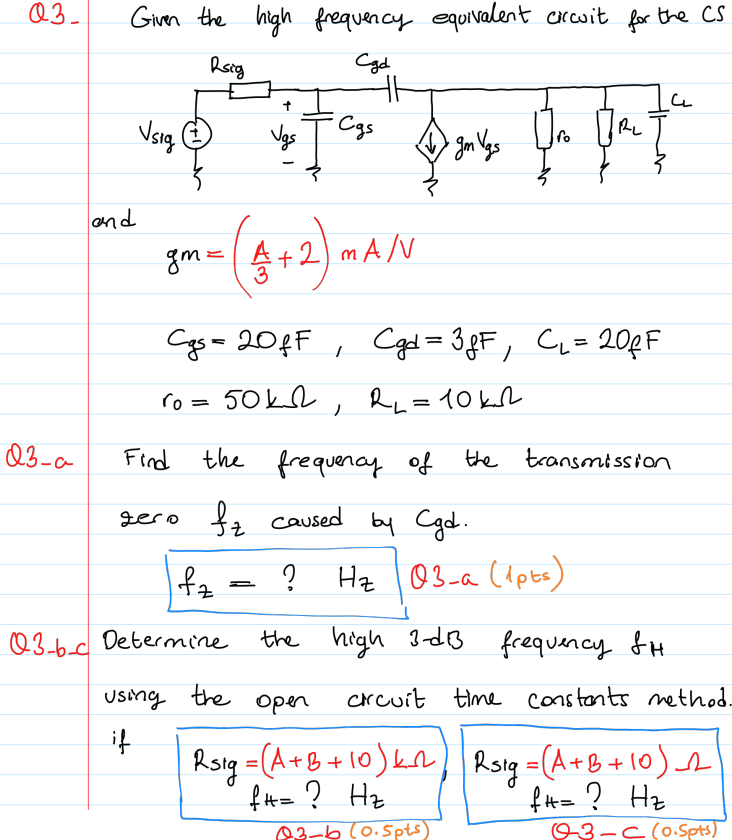 Q3- Given the high frequency equivalent circuit for the CS
Rsig Cgd
Vsig + Vgs - Cgs gm Vgs ro RL CL
and
gm = (A/3 + 2) mA/V
Cgs = 20fF , Cgd = 3fF, CL = 20fF
ro = 50kΩ , RL = 10kΩ
Q3-a Find the frequency of the transmission
zero fz caused by Cgd.
fz = ? Hz Q3-a (1pts)
Q3-b-c Determine the high 3-dB frequency fH
using the open circuit time constants method.
if
Rsig = (A+B+10) kΩ , Rsig = (A+B+10) Ω
fH = ? Hz fH = ? Hz
Q3-b (0.5pts) Q-3-c (0.5pts)